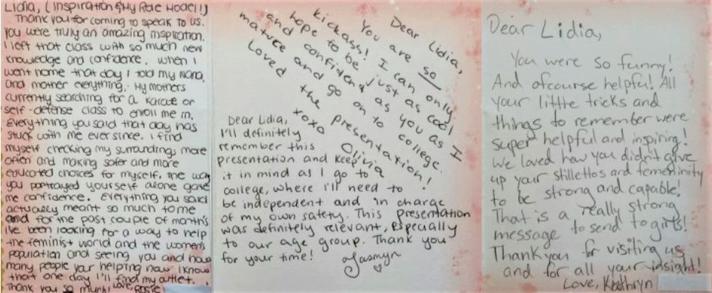 Lidia, (Inspiration & My Role Model!!)
Thank you for coming to speak to us.
You were truly an amazing inspiration.
I left that class with so much new
knowledge and confidence. When I
went home that day I told my nana,
and mother everything. My mothers
currently searching for a Karate or
self-defense class to enroll me in.
Everything you said that day has
stuck with me ever since. I find
myself checking my surroundings more
often and making safer and more
educated choices for myself. The way
you portrayed yourself alone gave
me confidence. Everything you said
actually meant so much to me
and for the past couple of months
I've been looking for a way to help
the feminist world and the women's
population and seeing you and how
many people your helping now I know
that one day I'll find my outlet.
Thank you so much! Love,
Dear Lidia,
You are so
kickass! I can only
hope to be just as cool
and confident as you as I
mature and go on to college.
Loved the presentation!
xoxo
Olivia
Dear Lidia,
I'll definitely
remember this
presentation and keep
it in mind as I go to
college, where I'll need to
be independent and in charge
of my own safety. This presentation
was definitely relevant, especially
to our age group. Thank you
for your time!
Dear Lidia,
You were so funny!
And ofcourse helpful! All
your little tricks and
things to remember were
super helpful and inspiring!
We loved how you didn't give
up your stillettos and femeninity
to be strong and capable!
That is a really strong
message to send to girls!
Thank you for visiting us
and for all your insight!
Love, Kathryn